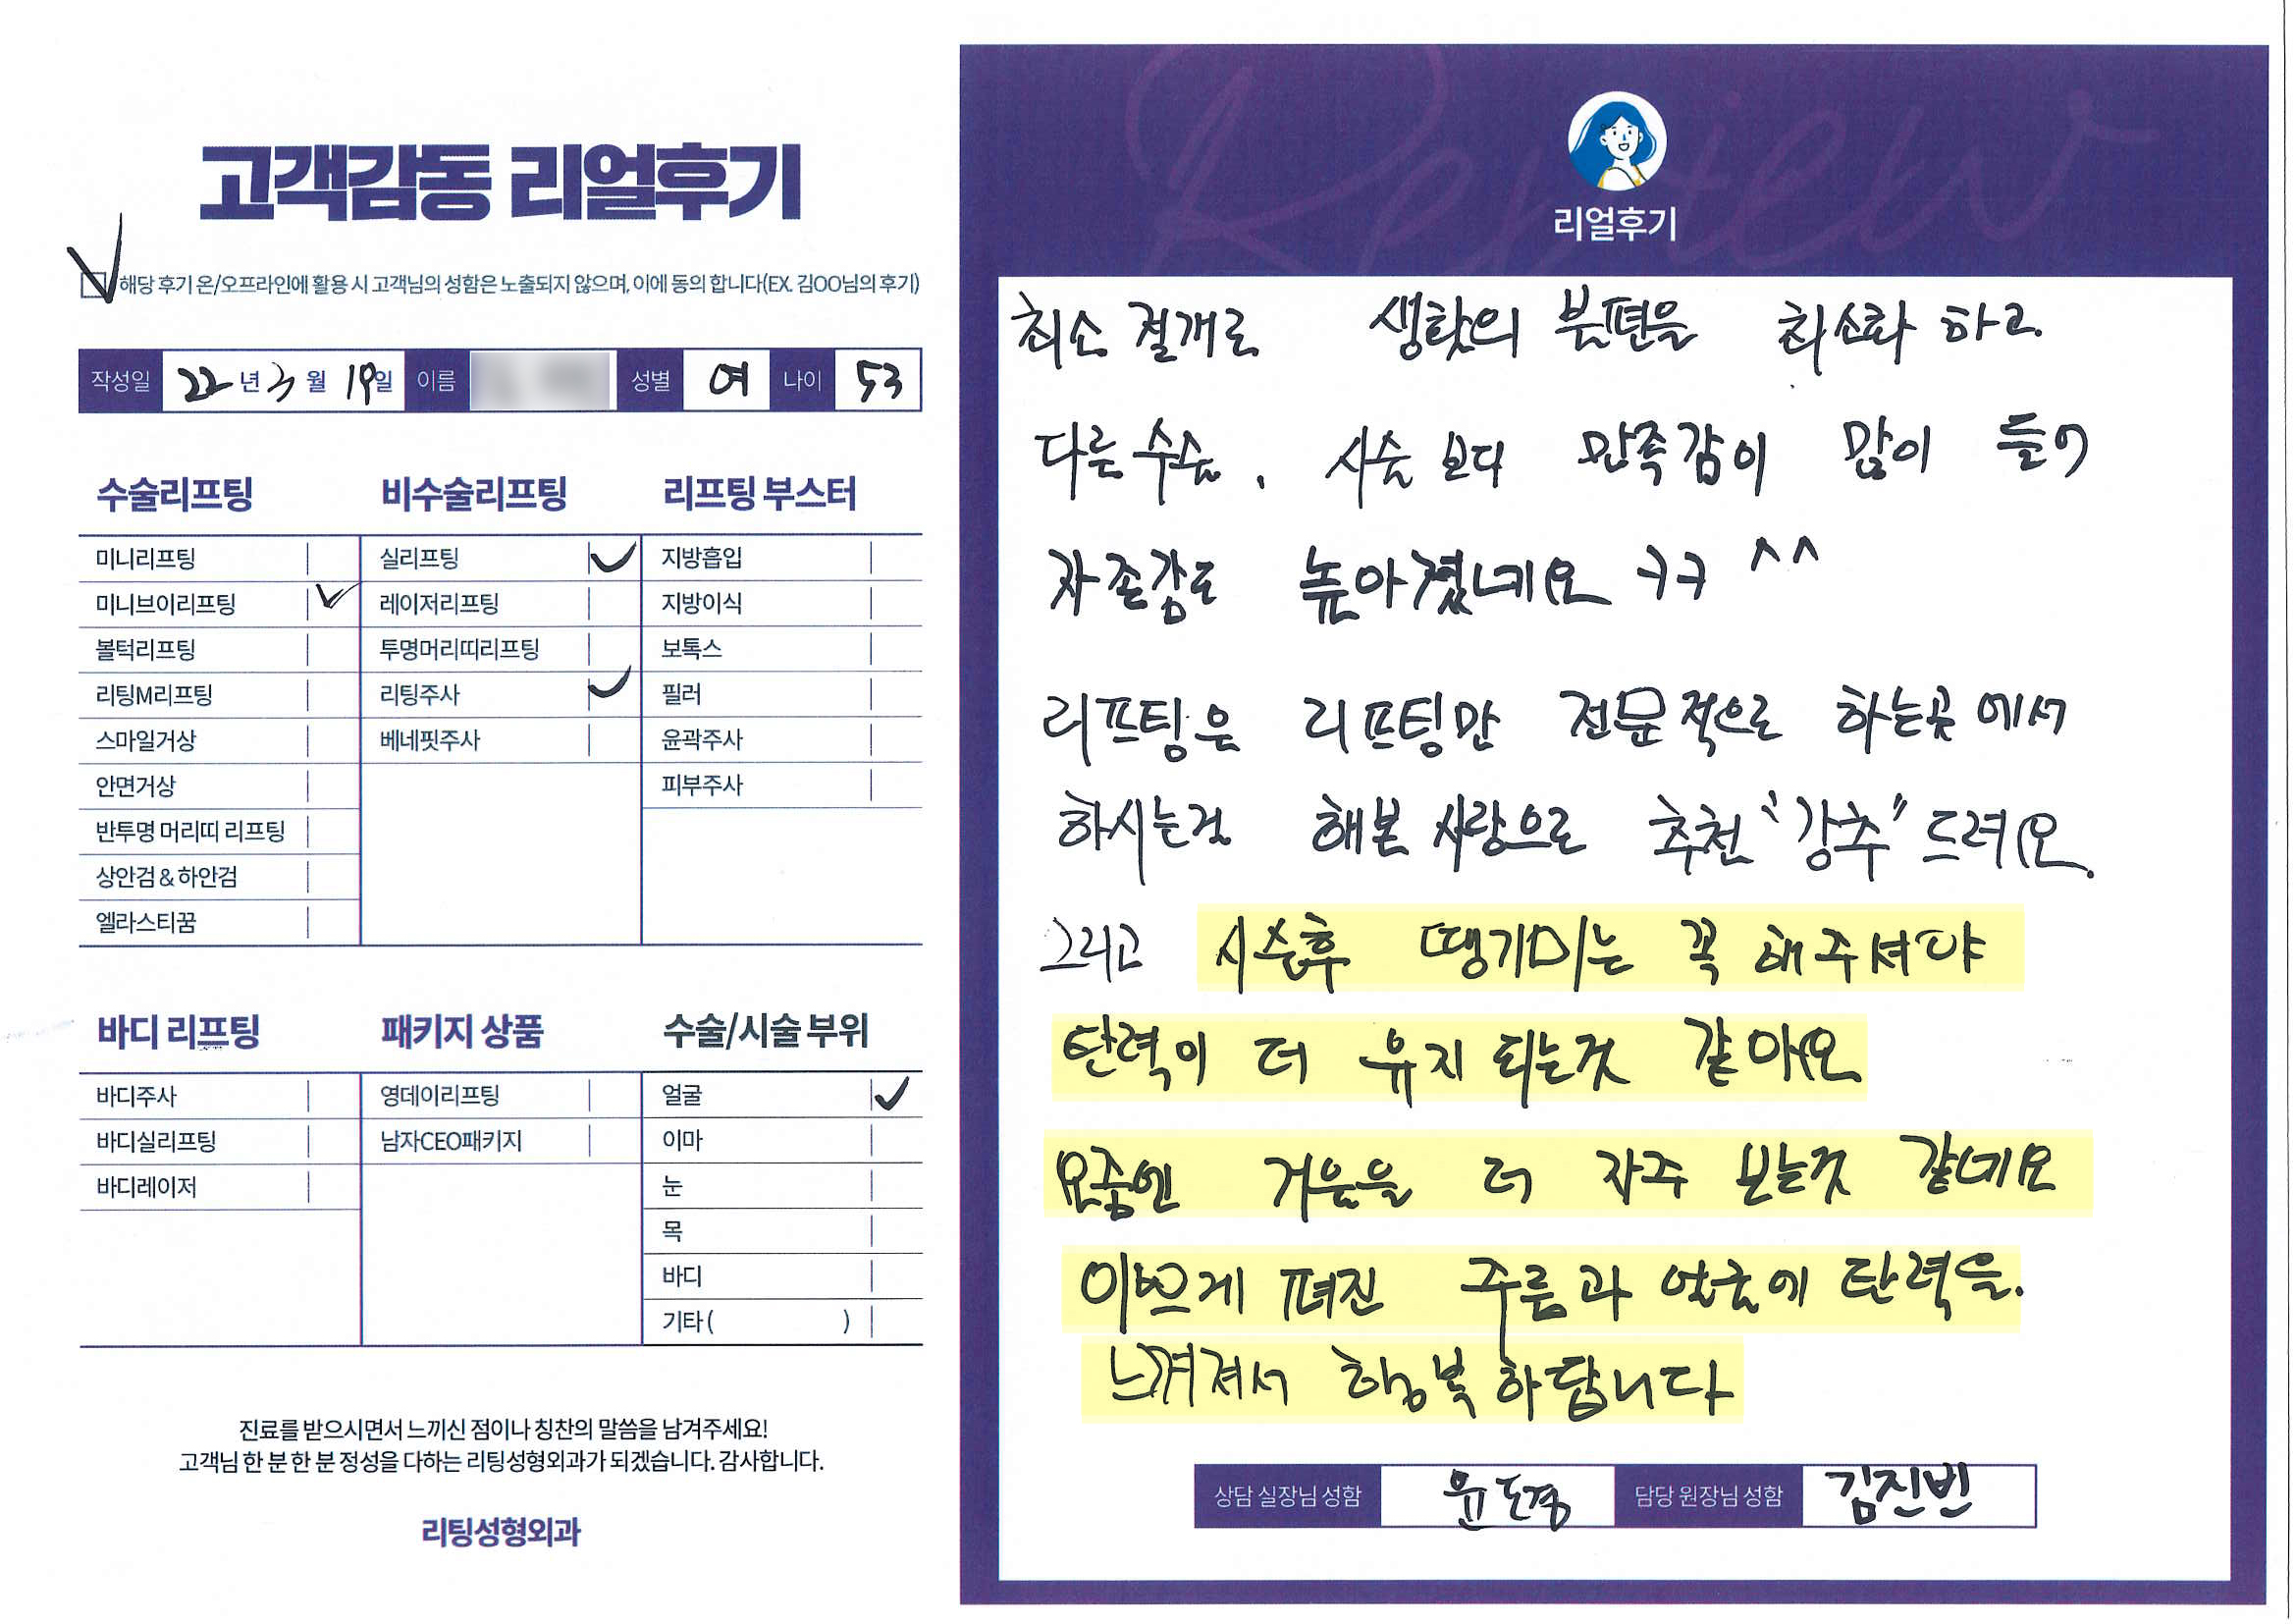 고객감동 리얼후기
해당 후기 온/오프라인에 활용 시 고객님의 성함은 노출되지 않으며, 이에 동의 합니다(EX. 김OO님의 후기)
작성일 22년 3월 19일 이름 성별 여 나이 53
수술리프팅
미니리프팅
미니브이리프팅
볼턱리프팅
리팅M리프팅
스마일거상
안면거상
반투명 머리띠 리프팅
상안검 & 하안검
엘라스티꿈
비수술리프팅
실리프팅
레이저리프팅
투명머리띠리프팅
리팅주사
베네핏주사
리프팅 부스터
지방흡입
지방이식
보톡스
필러
윤곽주사
피부주사
바디 리프팅
바디주사
바디실리프팅
바디레이저
패키지 상품
영데이리프팅
남자CEO패키지
수술/시술 부위
얼굴
이마
눈
목
바디
기타 ( )
진료를 받으시면서 느끼신 점이나 칭찬의 말씀을 남겨주세요!
고객님 한 분 한 분 정성을 다하는 리팅성형외과가 되겠습니다. 감사합니다.
리팅성형외과
Review
리얼후기
최소 절개로 생활의 불편을 최소화 하고
다른 수술, 시술 보다 만족감이 많이 들어
자존감도 높아졌네요 ㅋㅋ ^^
리프팅은 리프팅만 전문적으로 하는곳에서
하시는걸 해본 사람으로 추천 "강추" 드려요.
그리고 시술후 땡기미는 꼭 해주셔야
탄력이 더 유지 되는것 같아요
요즘엔 거울을 더 자주 보는것 같네요
이쁘게 펴진 주름과 얼굴에 탄력을.
느껴져서 행복하답니다
상담 실장님 성함 윤도경 담당 원장님 성함 김진빈